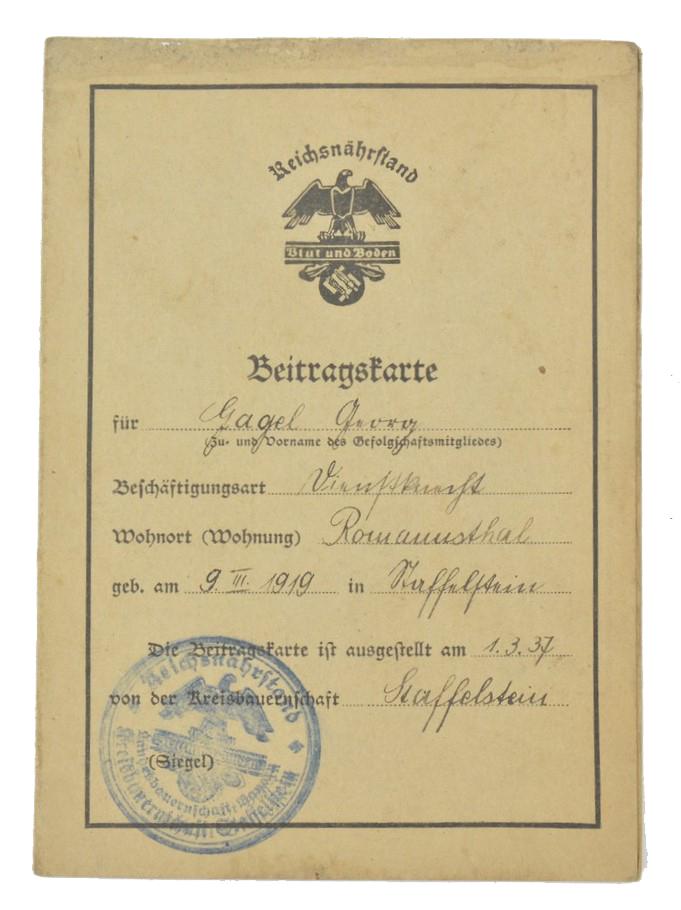 Reichsnährstand
Blut und Boden
Beitragskarte
für Gagel Georg
(Zu- und Vorname des Gefolgschaftsmitgliedes)
Beschäftigungsart Dienstknecht
Wohnort (Wohnung) Romannsthal
geb. am 9. III. 1919 in Staffelstein
Die Beitragskarte ist ausgestellt am 1.3.37
von der Kreisbauernschaft Staffelstein
(Siegel)
Reichsnährstand
Landesbauernschaft: Bayern
Kreisbauernschaft: Staffelstein